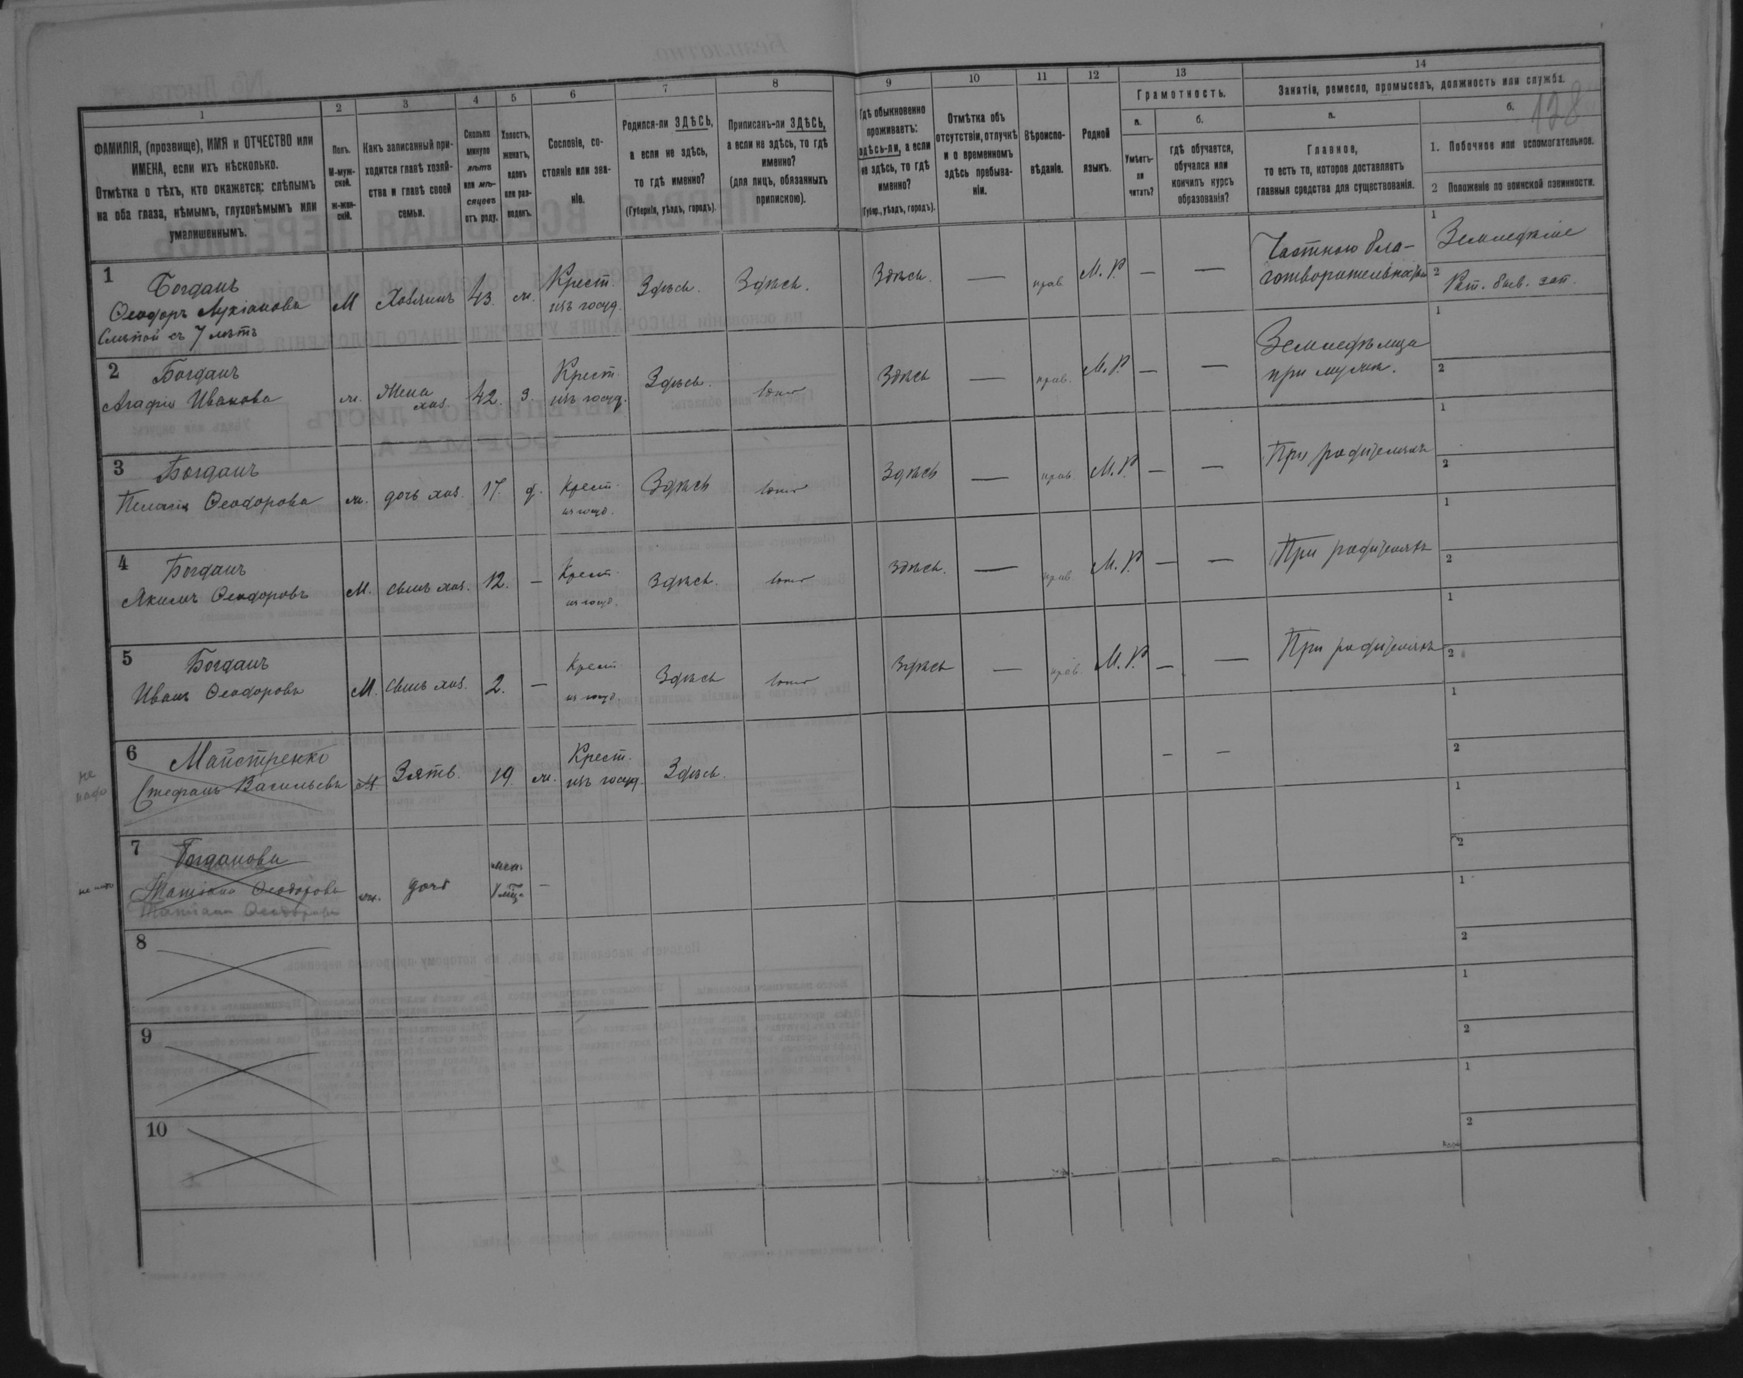 128
1
ФАМИЛІЯ, (прозвище), ИМЯ и ОТЧЕСТВО или
ИМЕНА, если ихъ нѣсколько.
Отмѣтка о тѣхъ, кто окажется: слѣпымъ
на оба глаза, нѣмымъ, глухонѣмымъ или
умалишеннымъ.
2
Полъ.
М-муж-
ской.
ж-жен-
скій.
3
Какъ записанный при-
ходится главѣ хозяй-
ства и главѣ своей
семьи.
4
Сколько
минуло
лѣтъ
или мѣ-
сяцевъ
отъ роду.
5
Холостъ,
женатъ,
вдовъ
или раз-
веденъ.
6
Сословіе, со-
стояніе или зва-
ніе.
7
Родился-ли ЗДѢСЬ,
а если не здѣсь,
то гдѣ именно?
(Губернія, уѣздъ, городъ).
8
Приписанъ-ли ЗДѢСЬ,
а если не здѣсь, то гдѣ
именно?
(для лицъ, обязанныхъ
припискою).
9
Гдѣ обыкновенно
проживаетъ:
здѣсь-ли, а если
не здѣсь, то гдѣ
именно?
(Губер., уѣздъ, городъ).
10
Отмѣтка объ
отсутствіи, отлучкѣ
и о временномъ
здѣсь пребыва-
ніи.
11
Вѣроиспо-
вѣданіе.
12
Родной
языкъ.
13
Грамотность.
а.
Умѣетъ-
ли
читать?
б.
гдѣ обучается,
обучался или
кончилъ курсъ
образованія?
14
Занятіе, ремесло, промыселъ, должность или служба.
а.
Главное,
то есть то, которое доставляетъ
главныя средства для существованія.
б.
1. Побочное или вспомогательное.
2 Положеніе по воинской повинности.
1
Богданъ
Ѳеодоръ Лукіановъ
Слѣпой съ 7 лѣтъ
М
Хозяинъ
43
ж.
Крест.
изъ госуд.
Здѣсь.
Здѣсь.
Здѣсь.
—
прав.
М. Р.
—
—
Частною бла-
готворительностью
1
Земледѣліе
2
Рат.
2
Богданъ
Агафія Иванова
ж.
Жена
хоз.
42.
з
Крест.
изъ госуд.
Здѣсь.
тоже
Здѣсь
—
прав.
М. Р.
—
—
Земледѣлица
при мужѣ.
1
2
3
Богданъ
Пелагія Ѳеодорова
ж.
дочь хоз.
17.
д.
Крест.
из госуд.
Здѣсь
тоже
Здѣсь
—
прав.
М. Р.
—
—
При родителяхъ
1
2
4
Богданъ
Якимъ Ѳеодоровъ
М.
сынъ хоз.
12.
—
Крест.
из госуд.
Здѣсь.
тоже
Здѣсь.
—
прав.
М. Р.
—
—
При родителяхъ
1
2
5
Богданъ
Иванъ Ѳеодоровъ
М.
сынъ хоз.
2.
—
Крест.
из госуд.
Здѣсь
тоже
Здѣсь
—
прав.
М. Р.
—
—
При родителяхъ
1
2
не
надо
6
Майстренко
Стефанъ Васильевъ
М
Зять.
19
ж.
Крест.
изъ госуд.
Здѣсь.
—
—
1
2
7
Богданова
Татіана Ѳеодорова
Татіана Ѳеодорова
ж.
дочь
—
1
2
8
1
2
9
1
2
10
1
2